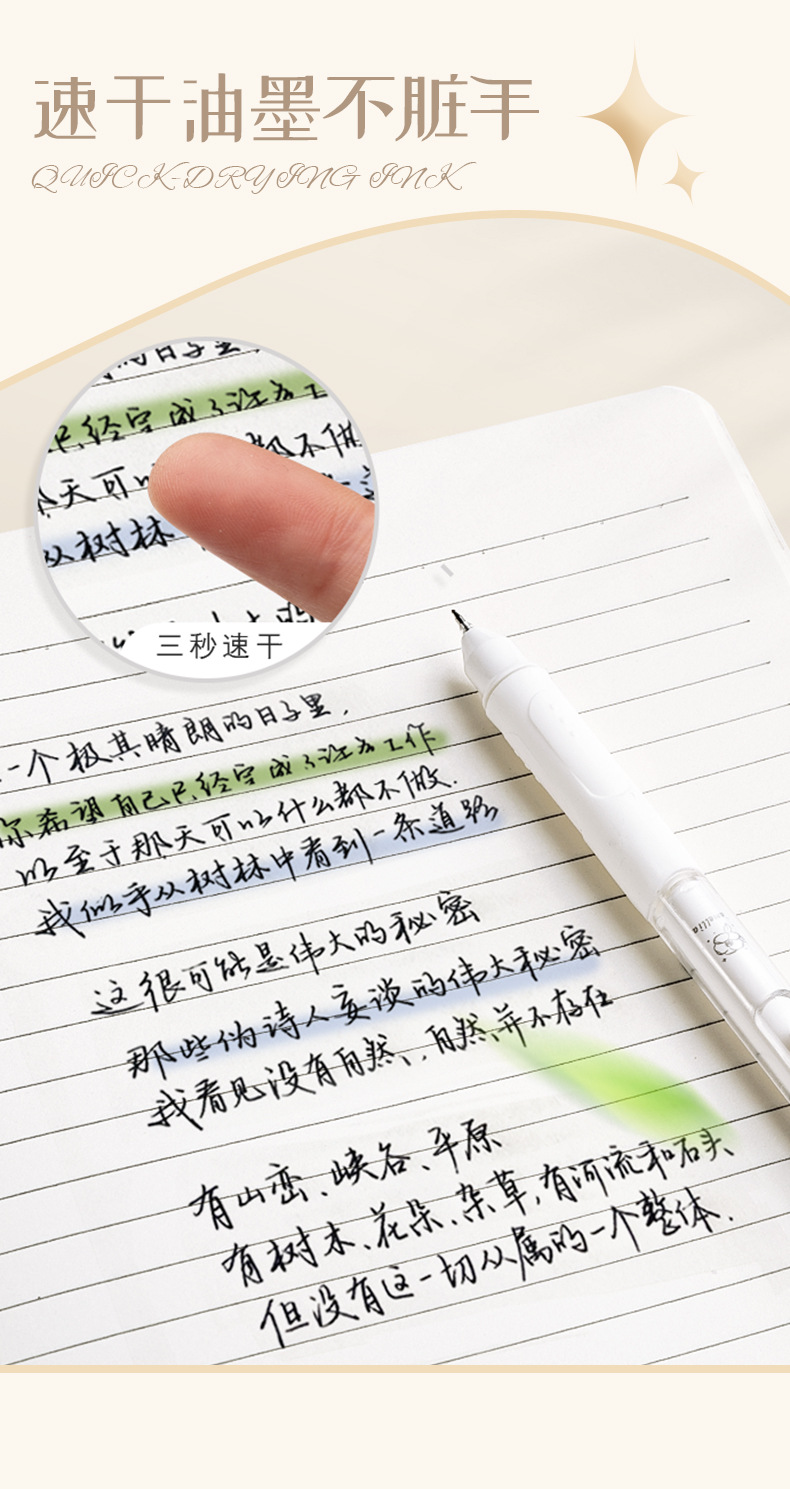 速干油墨不脏手
QUICK-DRYING INK
的日子里
已经完成了许多工
那天可以 都不做
从树林
三秒速干
一个极其晴朗的日子里，
你希望自己已经完成了许多工作
以至于那天可以什么都不做.
我似乎从树林中看到一条道路
这很可能是伟大的秘密
那些伪诗人妄谈的伟大秘密
我看见没有自然、,自然并不存在
有山峦、峡谷、平原
有树木、花朵、杂草,有河流和石头、
但没有这一切从属的一个整体.